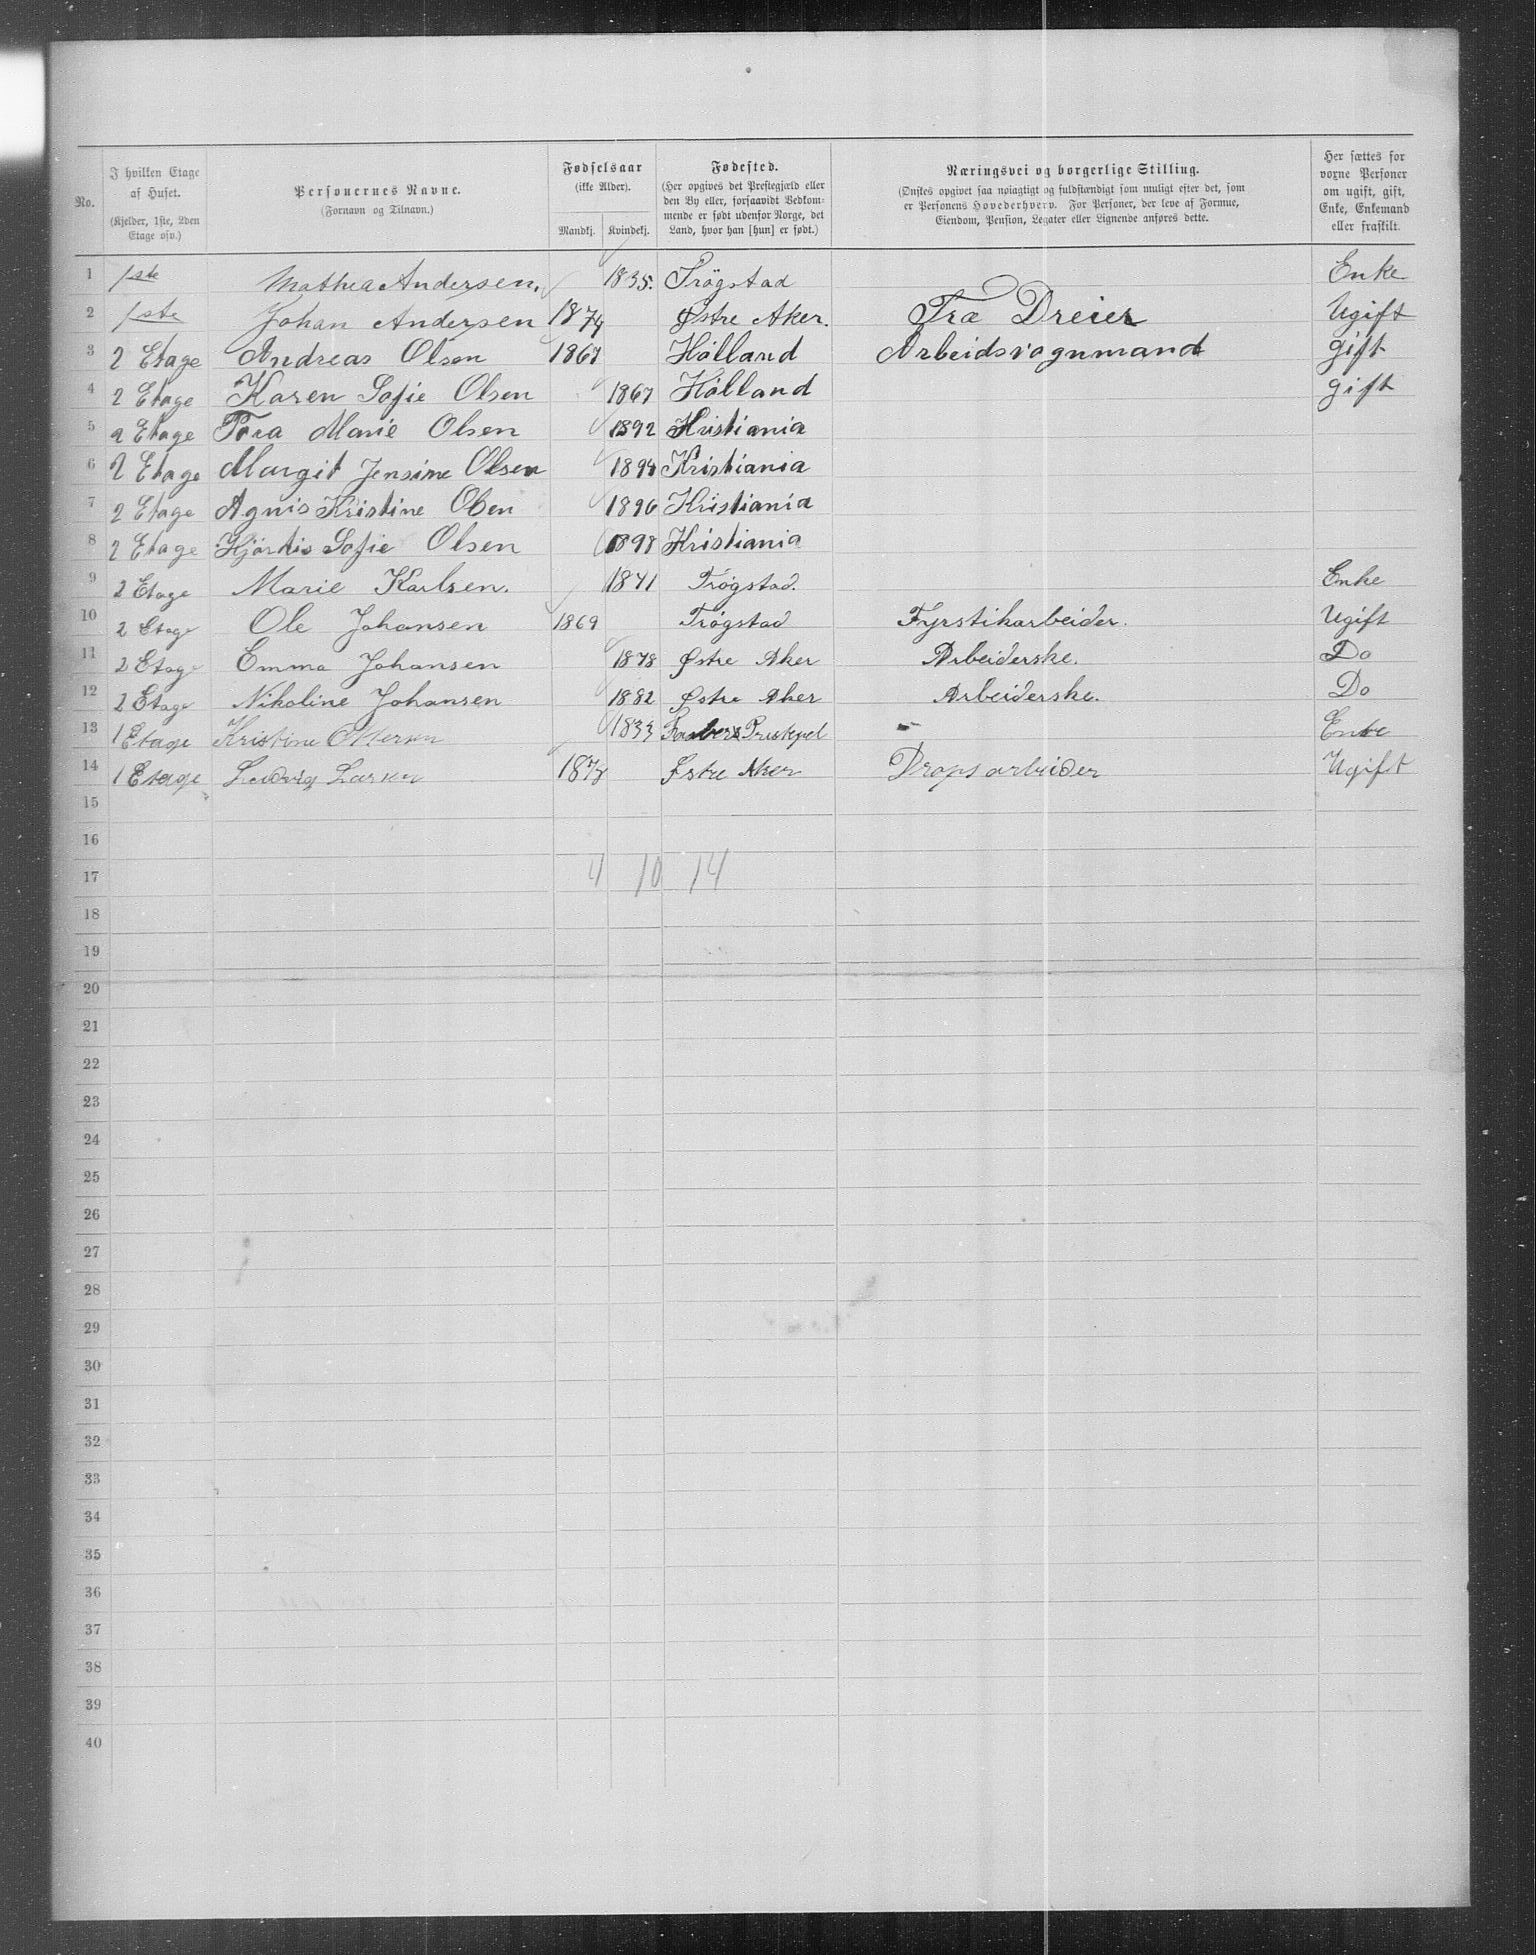 No.
I hvilken Etage af Huset.
(Kjelder, 1ste, 2den Etage osv.)
Personernes Navne.
(Fornavn og Tilnavn.)
Fødselsaar
(ikke Alder).
Mandkj. Kvindekj.
Fødested.
(Her opgives det Prestegjæld eller den By eller, forsaavidt Vedkommende er født udenfor Norge, det Land, hvor han [hun] er født.)
Næringsvei og borgerlige Stilling.
(Ønskes opgivet saa nøiagtigt og fuldstændigt som muligt efter det, som er Personens Hovederhverv. For Personer, der leve af Formue, Eiendom, Pension, Legater eller Lignende anføres dette.)
Her sættes for voxne Personer om ugift, gift, Enke, Enkemand eller fraskilt.
1 1ste Mathea Andersen. 1835. Trøgstad Enke
2 1ste Johan Andersen 1874 Østre Aker. Træ Dreier Ugift
3 2 Etage Andreas Olsen 1867 Hølland Arbeidsvognmand gift
4 2 Etage Karen Sofie Olsen 1867 Hølland gift
5 2 Etage Tora Marie Olsen 1892 Kristiania
6 2 Etage Margit Jensine Olsen 1894 Kristiania
7 2 Etage Agnis Kristine Olsen 1896 Kristiania
8 2 Etage Hjørdis Sofie Olsen 1898 Kristiania
9 2 Etage Marie Karlsen. 1841 Trøgstad. Enke
10 2 Etage Ole Johansen 1869 Trøgstad Fyrstikarbeider. Ugift
11 2 Etage Emma Johansen 1878 Østre Aker Arbeiderske. Do
12 2 Etage Nikoline Johansen 1882 Østre Aker Arbeiderske. Do
13 1 Etage Kristine 1833 - Enke
14 1 Etage Ludvig Larsen 1878 Østre Aker Drops arbeider Ugift
15
16
17 4 10 14
18
19
20
21
22
23
24
25
26
27
28
29
30
31
32
33
34
35
36
37
38
39
40